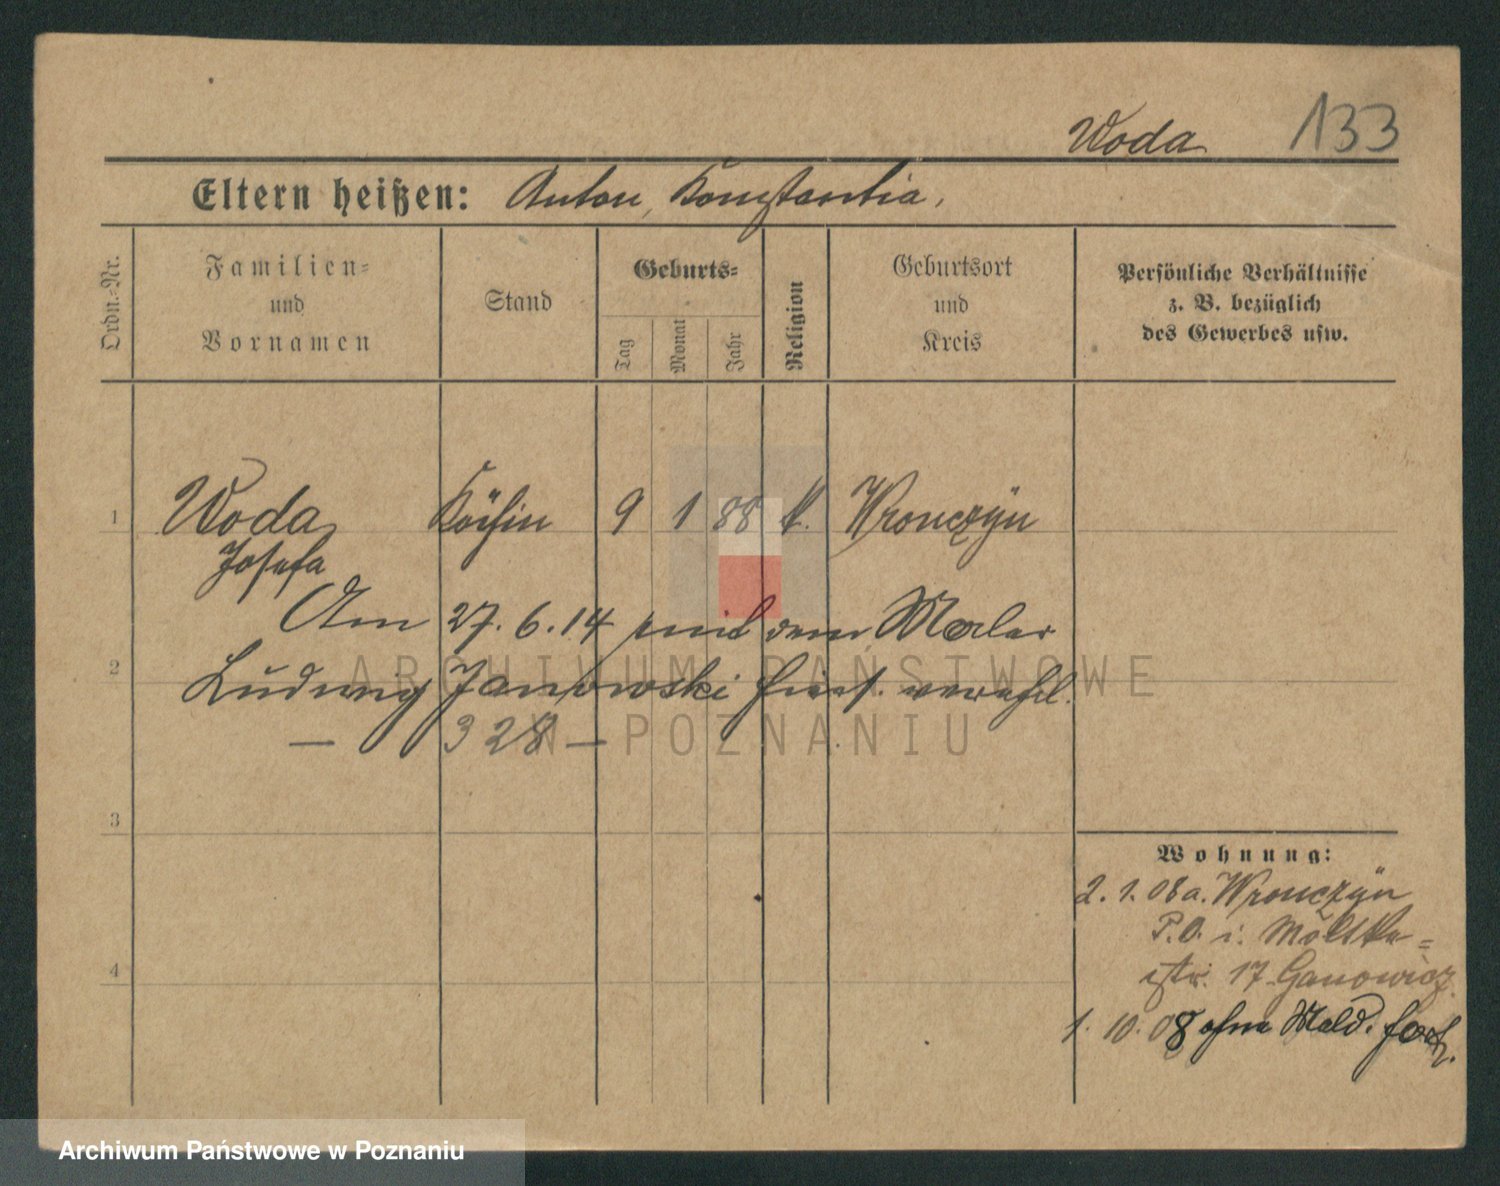 Woda 133
Eltern heißen: Anton, Konstantia,
Ordn.-Nr.
Familien-
und
Vornamen
Stand
Geburts-
Tag
Monat
Jahr
Religion
Geburtsort
und
Kreis
Persönliche Verhältnisse
z. B. bezüglich
des Gewerbes usw.
1 Woda Köchin 9 1 88 k. Wronczÿn
Josefa
Am 27.6.14 mit dem Maler
2 Ludwig Janowski hier verehel.
— 328 —
3
4
Wohnung:
2. 1. 08 a. Wronczÿn
P.O. i. Moltke=
str. 17 Ganowicz
1. 10. 08 ohne Meld. fort.
ARCHIWUM PAŃSTWOWE
W POZNANIU
Archiwum Państwowe w Poznaniu